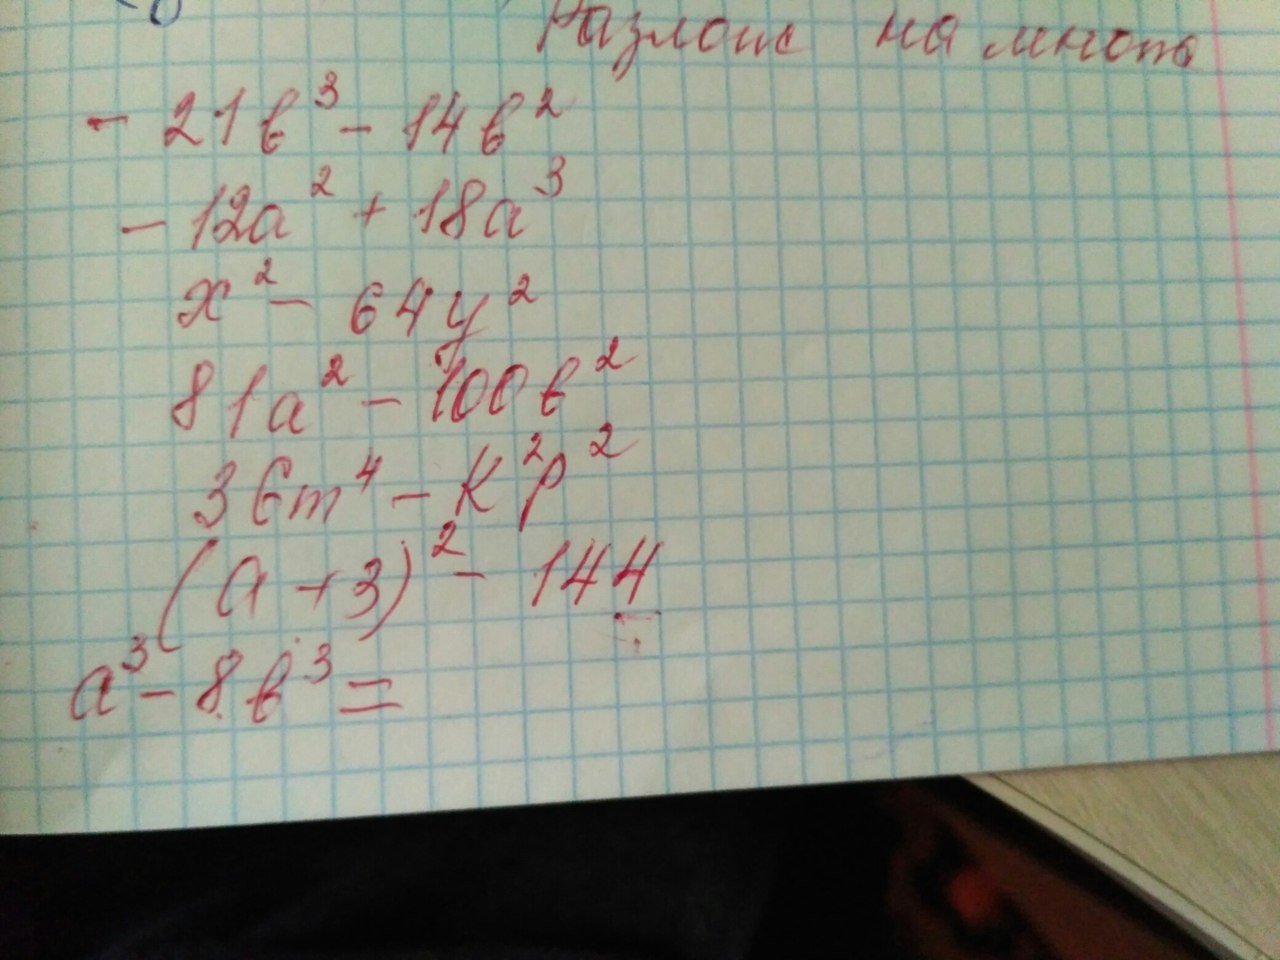 Разлож на множ
- 21в³ - 14в²
- 12а² + 18а³
х² - 64у²
81а² - 100в²
36m⁴ - k²p²
(а + 3)² - 144
а³ - 8в³ =